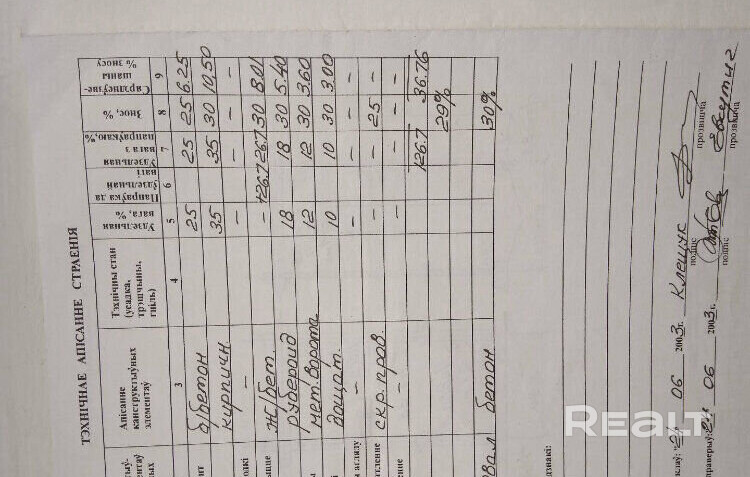 ТЭХНІЧНАЕ АПІСАННЕ СТРАЕННЯ
Апісанне канструктыўных элементаў
Тэхнічны стан (усадка, трэшчыны, гніль)
Удзельная вага, %
Папраўка да ўдзельнай вагі
Удзельная вага з папраўкаю,%
Знос, %
Сярэднеўзве-шаны % зносу
3 4 5 6 7 8 9
б/бетон 25 25 25 6.25
кирпичн 35 35 30 10,50
– – – –
ж/бет. – +26.7 26.7 30 8.01
рубероид 18 18 30 5.40
мет.ворота 12 12 30 3.60
дощат. 10 10 30 3.00
– – – –
скр.пров. – – 25 –
– – – – –
126.7 36.76
29%
бетон 30%
21 06 2003г. Клещук
подпіс прозвішча
06 2003г.
подпіс прозвішча
Realt